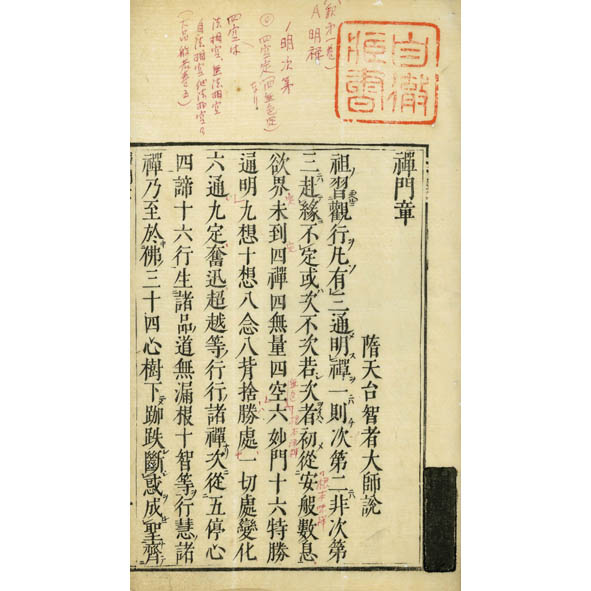 禪門章
隋天台智者大師說
祖習觀行凡有三通明禪一則次第二非次第
三赴緣不定或次不次若次者初從安般數息
欲界未到四禪四無量四空六妙門十六特勝
通明九想十想八念八背捨勝處一切處變化
六通九定奮迅超越等行行諸禪次從五停心
四諦十六行生諸品道無漏根十智等行慧諸
禪乃至於佛三十四心樹下跏趺斷惑成聖齊
A 明禪
明次第
四空定
四空は
法相空、無法相空
自法相空、他法相空